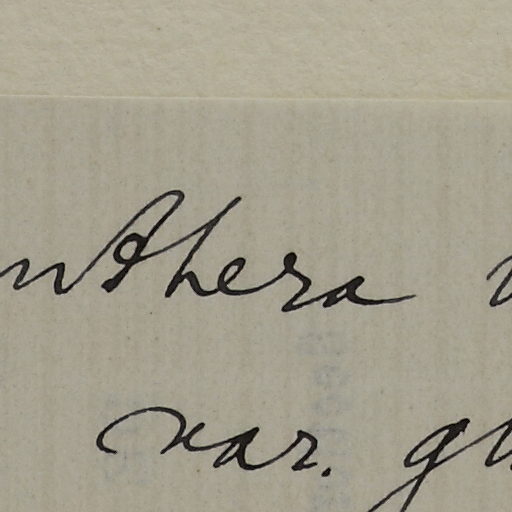 nthera
var. gl